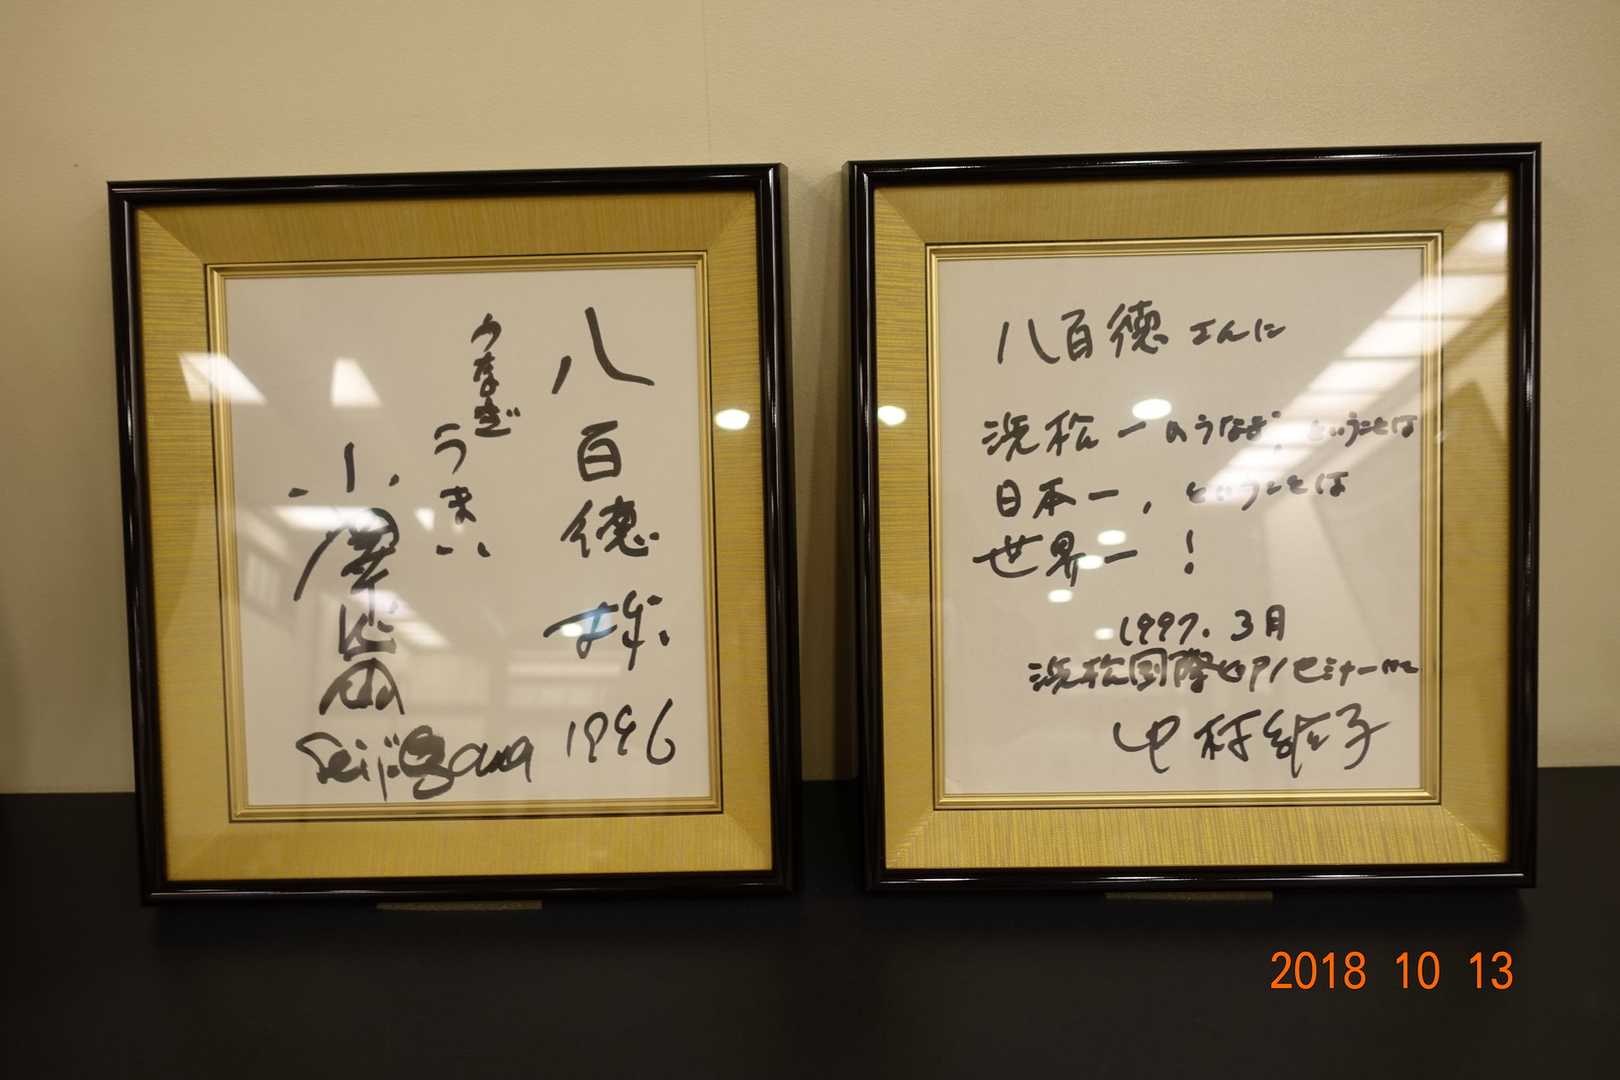 八百徳様
うなぎ
うまい
小澤征爾
Seiji Ozawa
1996
八百徳さんに
浜松一のうなぎ, ということは
日本一, ということは
世界一!
1997. 3月
浜松国際ピアノセミナーにて
中村紘子
2018 10 13